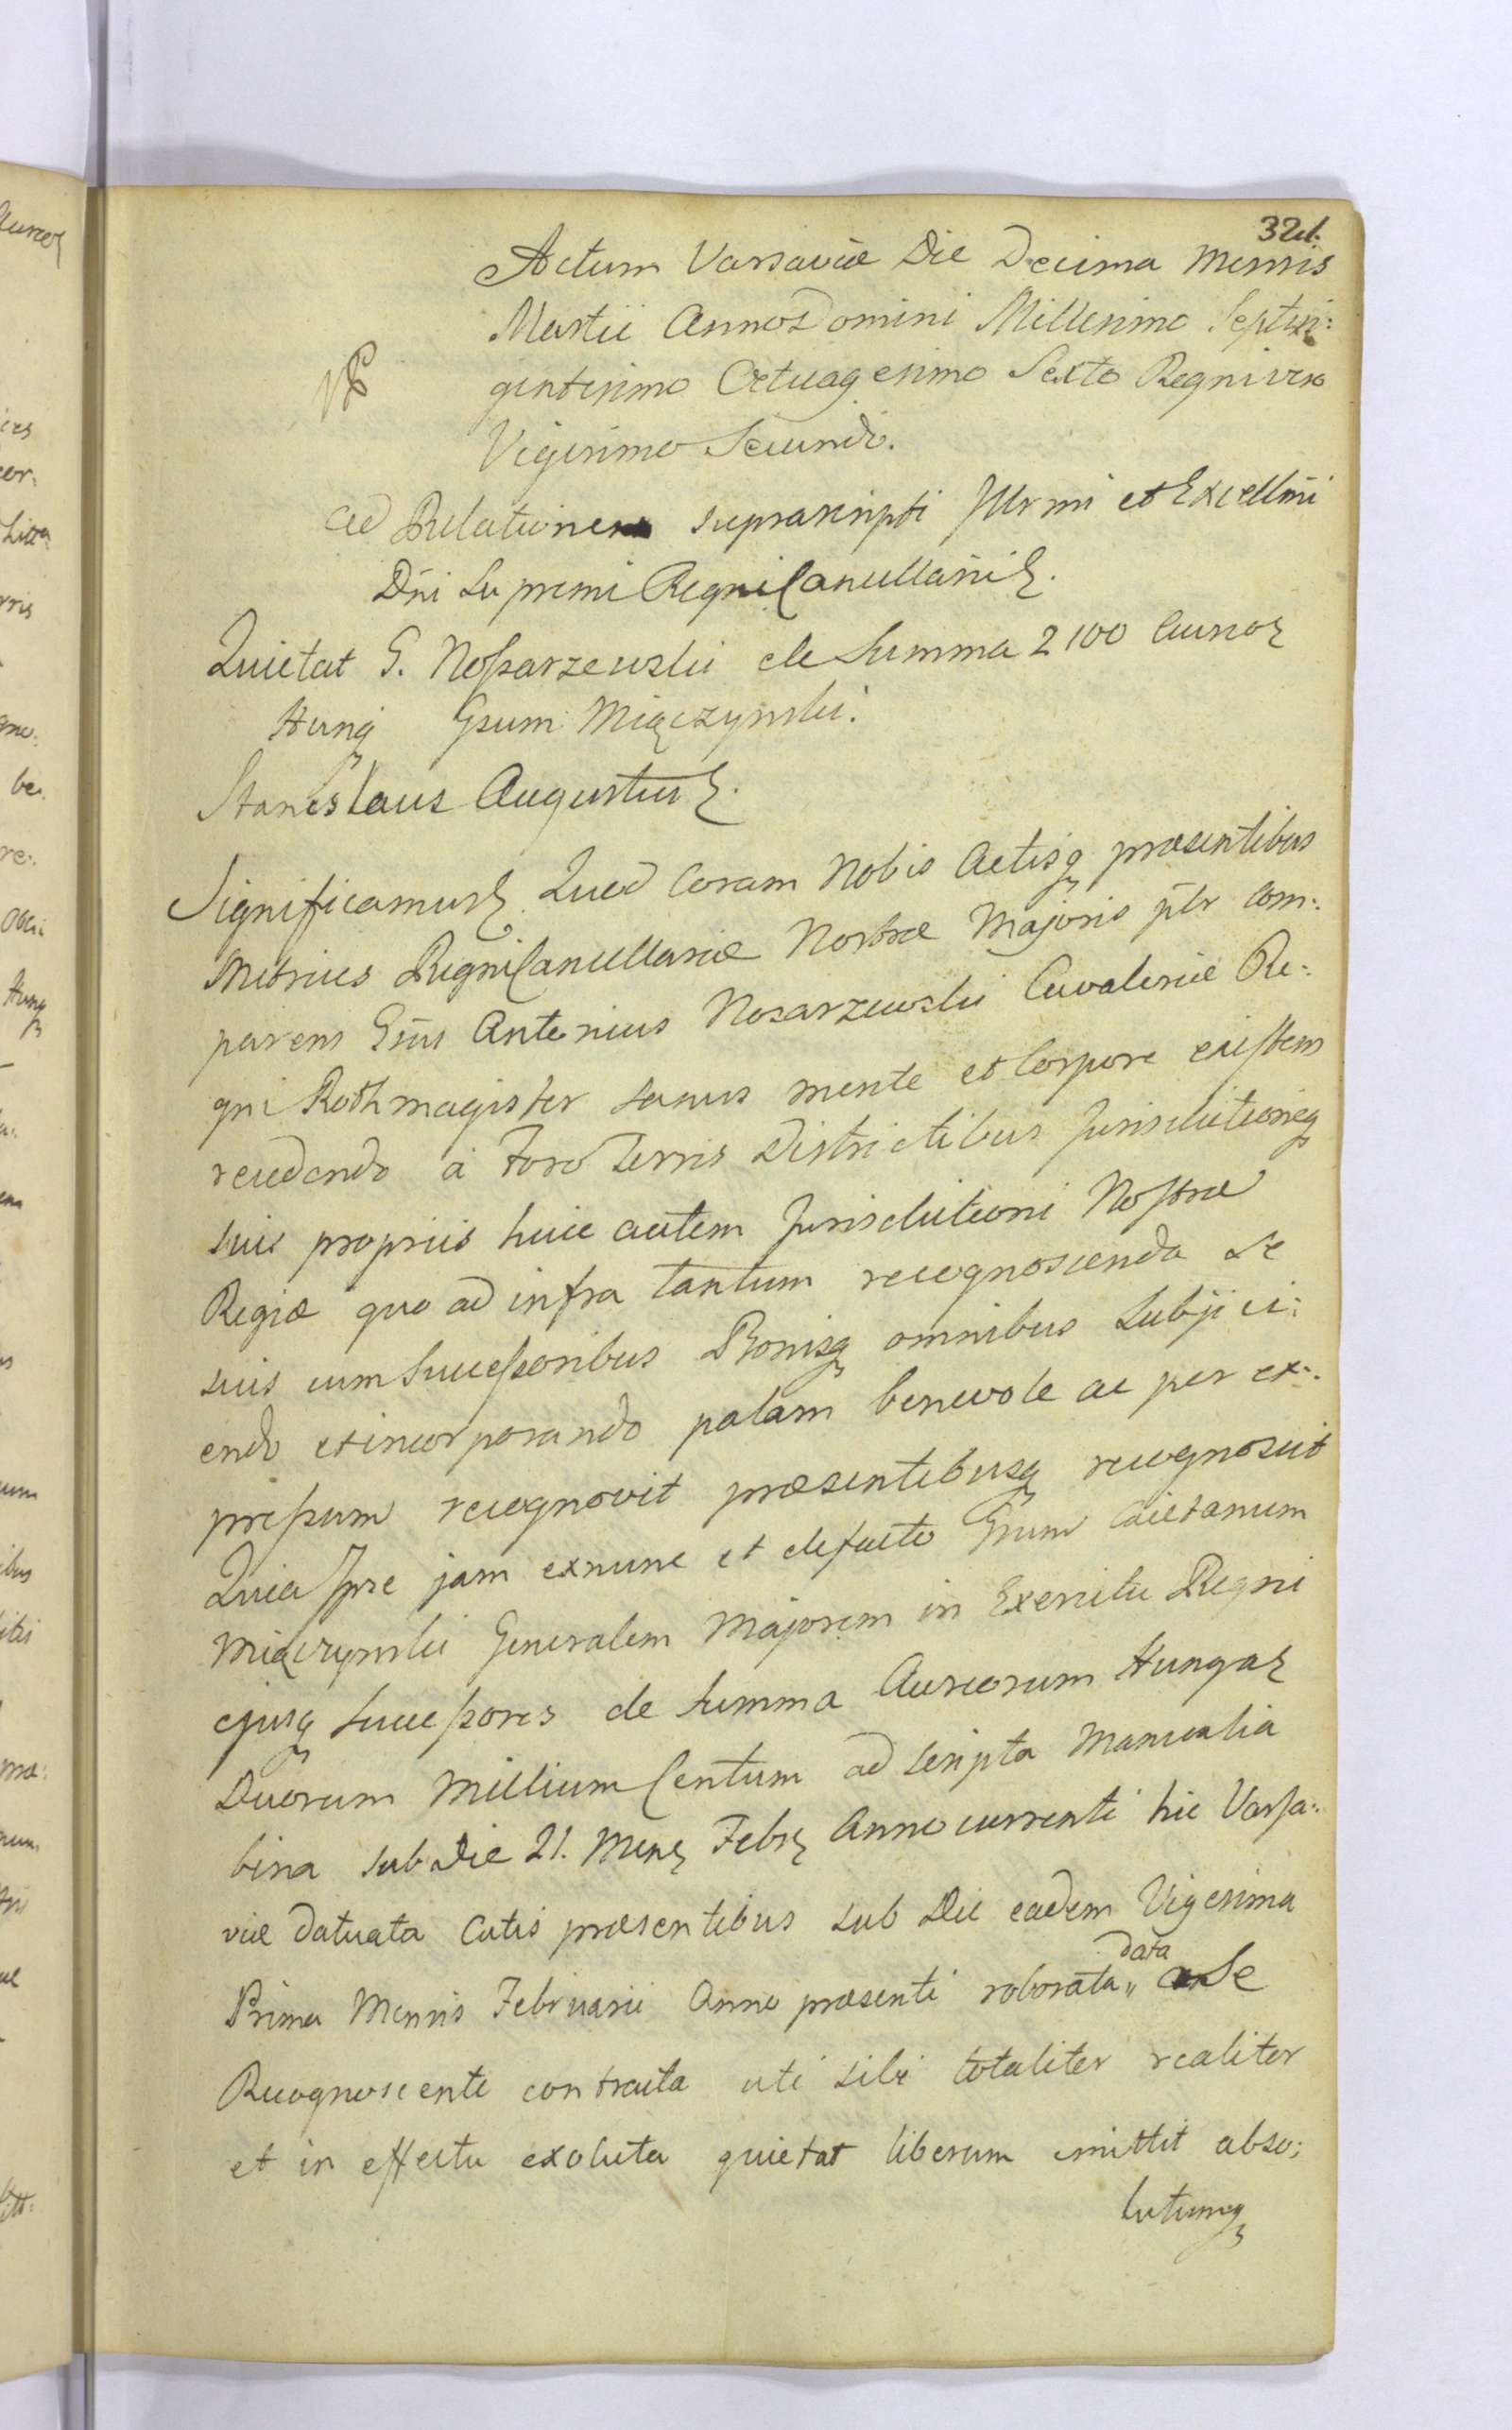 321.
Actum Varsaviæ Die Decima Mensis
Martii Anno Domini Millesimo Septin:
gentesimo Octuagesimo Sexto Regni vero
Vigesimo Secundo.
ad Relationem suprascripti Illrmi et Excellmi
Dni Supremi Regni Cancellarii &.
Quietat G. Nossarzewski de Summa 2100 Aureor
Hung Gsum Miączynski.
Stanislaus Augustus &.
Significamus & Quod Coram Nobis Actisq præsentibus
Metrices Regni Cancellariæ Nostræ Majoris pltr Com:
parens Gsus Antonius Nosarzewski Cavaleriæ Re:
gni Rothmagister sanus mente et Corpore existens
recedendo a Foro Terris Districtibus Jurisdictioneq
suis propriis huic autem Jurisdictioni Nostræ
Regiæ quo ad infra tantum recognoscenda se
suis cum Successoribus Bonisq omnibus Subjici:
endo et incorporando palam benevole ac per ex:
pressum recognovit præsentibusq recognoscit
Quia Ipse jam exnunc et defacto Gsum Caietanum
Miączynski Generalem Majorem in Exercitu Regni
ejusq Successores de Summa Aureorum Hungar
Duorum Millium Centum ad Scripta Manualia
bina sub Die 21. Mens Febr Anno currenti hic Varsa:
viæ datuata Actis præsentibus sub Die eadem Vigesima
Prima Mensis Februarii Anno præsenti roborata „ data a Se
Recognoscente contracta uti sibi totaliter realiter
et in effectu exoluta quietat liberum emittit abso:
lutumq